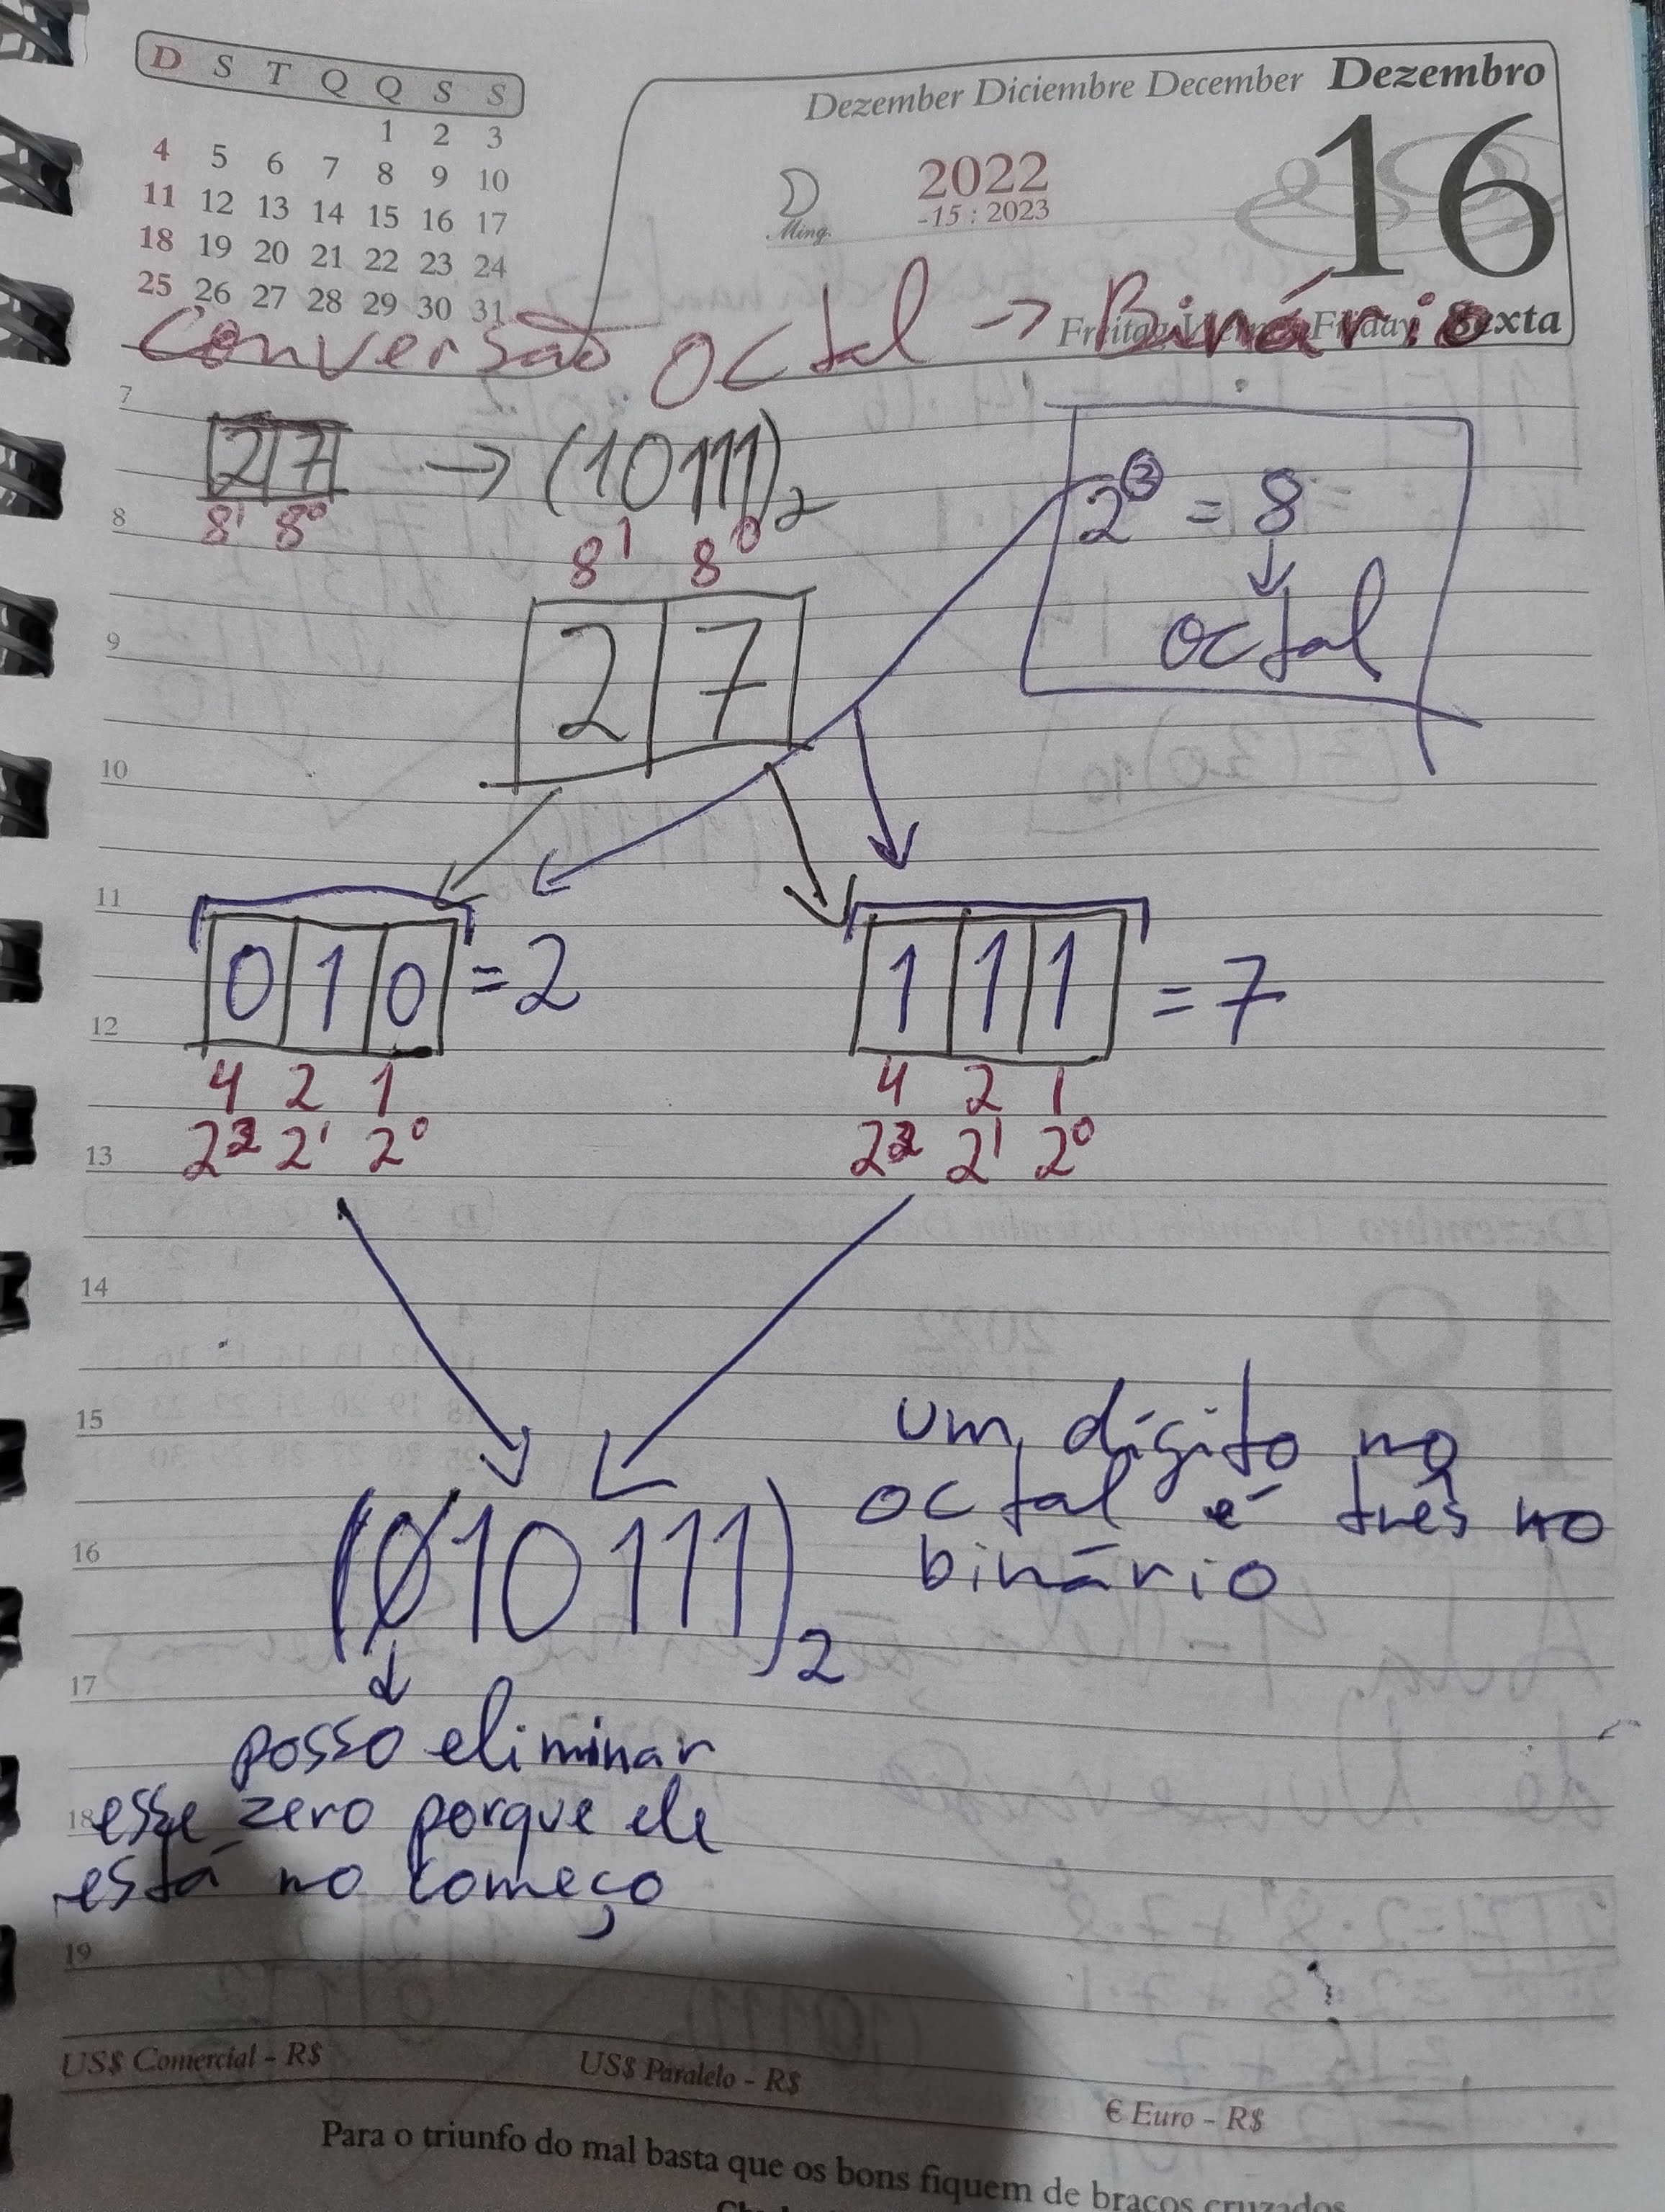 D S T Q Q S S
1 2 3
4 5 6 7 8 9 10
11 12 13 14 15 16 17
18 19 20 21 22 23 24
25 26 27 28 29 30 31
Dezember Diciembre December Dezembro
16
2022
-15 : 2023
Ming.
Freitag Friday Sexta
Conversão Octal → Binário
7
27 → (10111)2
8¹ 8⁰
8
8¹ 8⁰
2³ = 8
↓
octal
9
2 7
10
11
0 1 0 = 2
1 1 1 = 7
12
4 2 1
4 2 1
2² 2¹ 2⁰
2² 2¹ 2⁰
13
14
15
um dígito no
octal é três no
binário
16
(010111)2
17
↓
posso eliminar
18
esse zero porque ele
está no começo
19
US$ Comercial - R$
US$ Paralelo - R$
€ Euro - R$
Para o triunfo do mal basta que os bons fiquem de braços cruzados